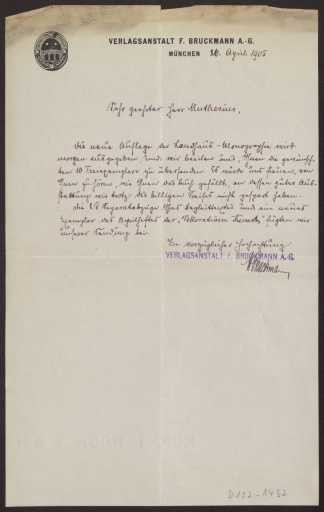 VERLAGSANSTALT F. BRUCKMANN A.-G.
MÜNCHEN 26. April 1905
Sehr geehrter Herr Muthesius,
Die neue Auflage der Landhaus-Monographie wird
morgen ausgegeben und wir beehren uns, Ihnen die gewünsch-
ten 10 Freiexemplare zu übersenden. Es würde uns freuen, von
Ihnen zu hören, wie Ihnen das Buch gefällt, an dessen guter Aus-
stattung wir trotz des billigen Preises nicht gespart haben.
Die Separatabzüge Ihres Begleittextes und ein
Exemplar des Aprilheftes der „Dekorativen Kunst“ fügten wir
unserer Sendung bei.
In vorzüglicher Hochachtung
VERLAGSANSTALT F. BRUCKMANN A.-G.
D102-1492